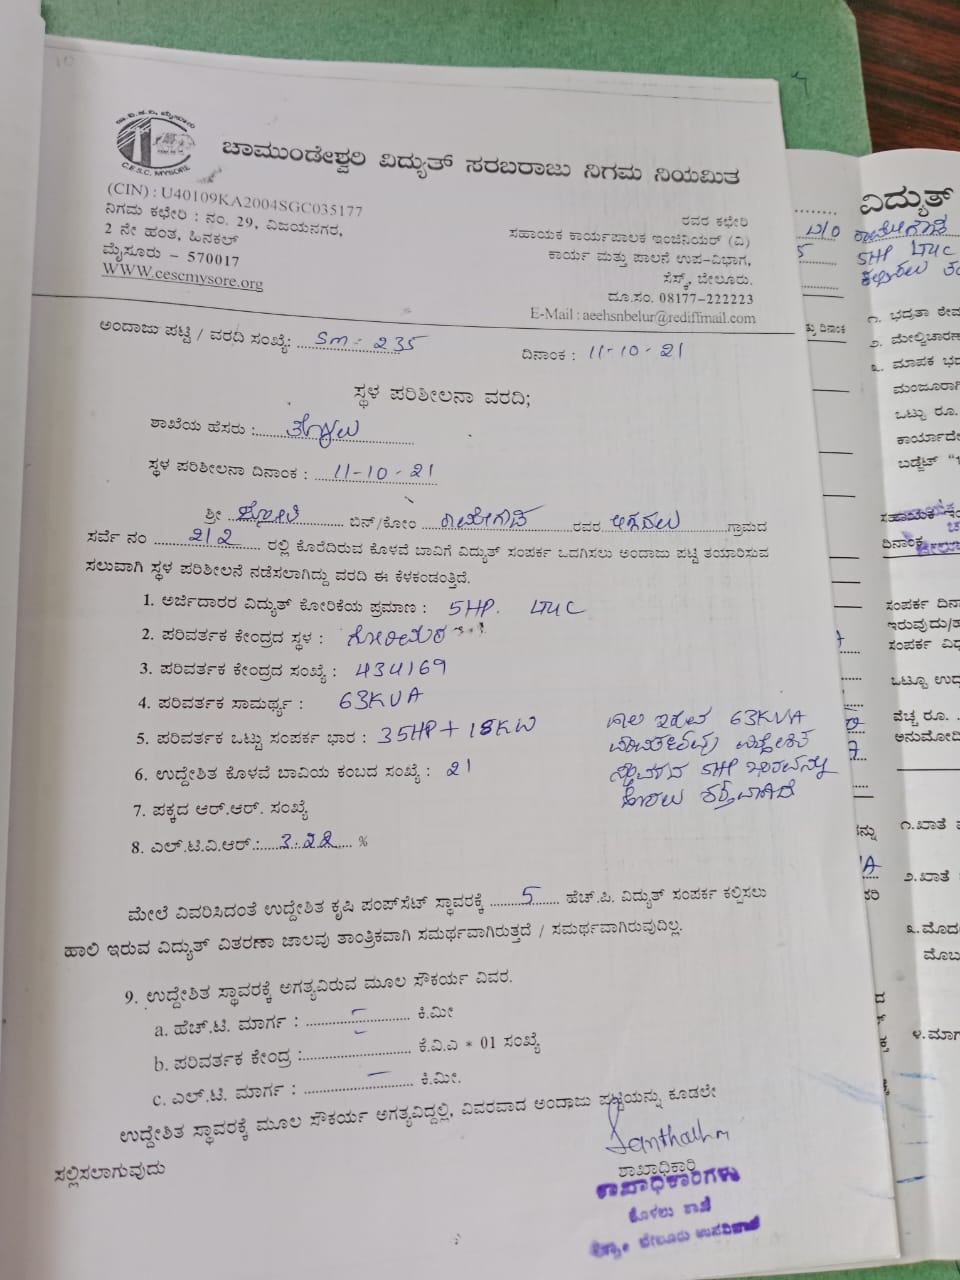 ಚಾಮುಂಡೇಶ್ವರಿ ವಿದ್ಯುತ್ ಸರಬರಾಜು ನಿಗಮ ನಿಯಮಿತ
C.E.S.C. MYSORE
(CIN) : U40109KA2004SGC035177
ನಿಗಮ ಕಛೇರಿ : ನಂ. 29, ವಿಜಯನಗರ,
2 ನೇ ಹಂತ, ಹಿನಕಲ್
ಮೈಸೂರು - 570017
WWW.cescmysore.org
ರವರ ಕಛೇರಿ
ಸಹಾಯಕ ಕಾರ್ಯಪಾಲಕ ಇಂಜಿನಿಯರ್ (ವಿ)
ಕಾರ್ಯ ಮತ್ತು ಪಾಲನೆ ಉಪ-ವಿಭಾಗ,
ಸೆಸ್ಕ್, ಬೇಲೂರು.
ದೂ.ಸಂ. 08177-222223
E-Mail : aeehsnbelur@rediffmail.com
ಅಂದಾಜು ಪಟ್ಟಿ / ವರದಿ ಸಂಖ್ಯೆ: Sm - 235
ದಿನಾಂಕ : 11-10-21
ಸ್ಥಳ ಪರಿಶೀಲನಾ ವರದಿ;
ಶಾಖೆಯ ಹೆಸರು :
ಸ್ಥಳ ಪರಿಶೀಲನಾ ದಿನಾಂಕ : 11-10-21
ಶ್ರೀ ಬಿನ್/ಕೋಂ ರಾಮೇಗೌಡ ರವರ ಗ್ರಾಮದ
ಸರ್ವೆ ನಂ 212 ರಲ್ಲಿ ಕೊರೆದಿರುವ ಕೊಳವೆ ಬಾವಿಗೆ ವಿದ್ಯುತ್ ಸಂಪರ್ಕ ಒದಗಿಸಲು ಅಂದಾಜು ಪಟ್ಟಿ ತಯಾರಿಸುವ
ಸಲುವಾಗಿ ಸ್ಥಳ ಪರಿಶೀಲನೆ ನಡೆಸಲಾಗಿದ್ದು ವರದಿ ಈ ಕೆಳಕಂಡಂತ್ತಿದೆ.
1. ಅರ್ಜಿದಾರರ ವಿದ್ಯುತ್ ಕೋರಿಕೆಯ ಪ್ರಮಾಣ : 5HP.
2. ಪರಿವರ್ತಕ ಕೇಂದ್ರದ ಸ್ಥಳ :
3. ಪರಿವರ್ತಕ ಕೇಂದ್ರದ ಸಂಖ್ಯೆ : 434169
4. ಪರಿವರ್ತಕ ಸಾಮರ್ಥ್ಯ : 63KVA
5. ಪರಿವರ್ತಕ ಒಟ್ಟು ಸಂಪರ್ಕ ಭಾರ : 35HP + 18KW
6. ಉದ್ದೇಶಿತ ಕೊಳವೆ ಬಾವಿಯ ಕಂಬದ ಸಂಖ್ಯೆ : 21
7. ಪಕ್ಕದ ಆರ್.ಆರ್. ಸಂಖ್ಯೆ
8. ಎಲ್.ಟಿ.ವಿ.ಆರ್.: 3.22 %
ಹಾಲಿ ಇರುವ 63KVA
ಪರಿವರ್ತಕವು ಉದ್ದೇಶಿತ
ಸ್ಥಾವರದ 5HP ಭಾರವನ್ನು
ಹೊರಲು ಶಕ್ತವಾಗಿದೆ
ಮೇಲೆ ವಿವರಿಸಿದಂತೆ ಉದ್ದೇಶಿತ ಕೃಷಿ ಪಂಪ್‌ಸೆಟ್ ಸ್ಥಾವರಕ್ಕೆ 5 ಹೆಚ್.ಪಿ. ವಿದ್ಯುತ್ ಸಂಪರ್ಕ ಕಲ್ಪಿಸಲು
ಹಾಲಿ ಇರುವ ವಿದ್ಯುತ್ ವಿತರಣಾ ಜಾಲವು ತಾಂತ್ರಿಕವಾಗಿ ಸಮರ್ಥವಾಗಿರುತ್ತದೆ / ಸಮರ್ಥವಾಗಿರುವುದಿಲ್ಲ.
9. ಉದ್ದೇಶಿತ ಸ್ಥಾವರಕ್ಕೆ ಅಗತ್ಯವಿರುವ ಮೂಲ ಸೌಕರ್ಯ ವಿವರ.
a. ಹೆಚ್.ಟಿ. ಮಾರ್ಗ : ಕಿ.ಮೀ
b. ಪರಿವರ್ತಕ ಕೇಂದ್ರ : ಕೆ.ವಿ.ಎ * 01 ಸಂಖ್ಯೆ
c. ಎಲ್.ಟಿ. ಮಾರ್ಗ : ಕಿ.ಮೀ.
ಉದ್ದೇಶಿತ ಸ್ಥಾವರಕ್ಕೆ ಮೂಲ ಸೌಕರ್ಯ ಅಗತ್ಯವಿದ್ದಲ್ಲಿ, ವಿವರವಾದ ಅಂದಾಜು ಪಟ್ಟಿಯನ್ನು ಕೂಡಲೇ
ಸಲ್ಲಿಸಲಾಗುವುದು
ಶಾಖಾಧಿಕಾರಿ
ಶಾಖಾಧಿಕಾರಿಗಳು
ಬೇಲೂರು ಉಪವಿಭಾಗ
ವಿದ್ಯುತ್
ರಾಮೇಗೌಡ
5HP
೧. ಭದ್ರತಾ ಠೇವ
೨. ಮೇಲ್ವಿಚಾರಣ
೩. ಮಾಪಕ ಭದ
ಮಂಜೂರಾಗಿ
ಒಟ್ಟು ರೂ.
ಕಾರ್ಯಾದೇ
ಬಡ್ಜೆಟ್
ದಿನಾಂಕ
ಸಂಪರ್ಕ ದಿನಾ
ಇರುವುದು/
ಸಂಪರ್ಕ ವಿಧ
ಒಟ್ಟೂ ಉದ್ದ
ವೆಚ್ಚ ರೂ.
ಅನುಮೋದಿ
೧.ಖಾತೆ
೨.ಖಾತೆ
೩.ಮೊದ
ಮೊಬ
೪.ಮಾರ್ಗ